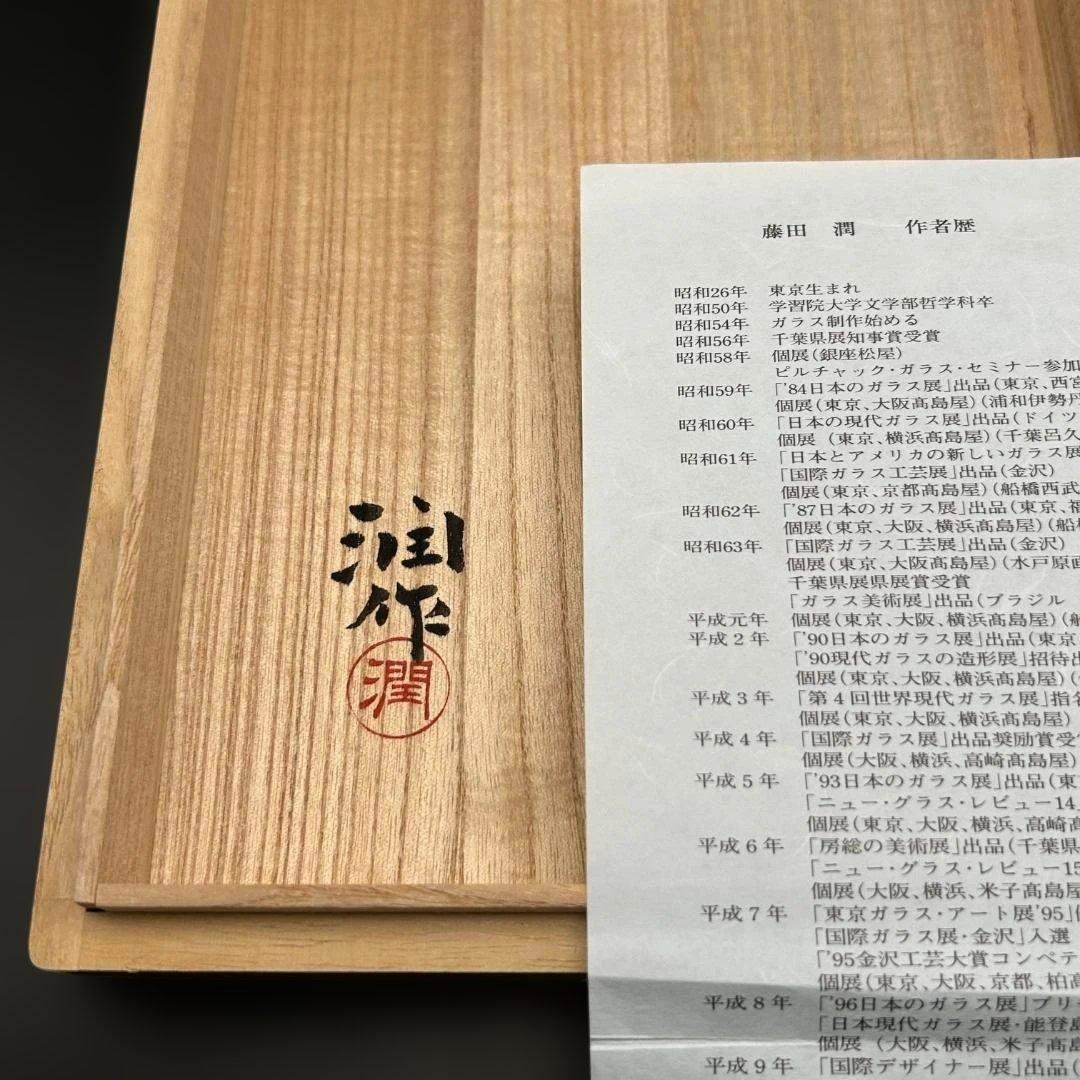 潤
作
潤
藤田 潤 作者歴
昭和26年 東京生まれ
昭和50年 学習院大学文学部哲学科卒
昭和54年 ガラス制作始める
昭和56年 千葉県展知事賞受賞
昭和58年 個展(銀座松屋)
ピルチャック・ガラス・セミナー参加
昭和59年 「'84日本のガラス展」出品(東京、西宮
個展(東京、大阪髙島屋)(浦和伊勢丹
昭和60年 「日本の現代ガラス展」出品(ドイツ
個展 (東京、横浜髙島屋)(千葉呂久
昭和61年 「日本とアメリカの新しいガラス展
「国際ガラス工芸展」出品(金沢)
個展(東京、京都髙島屋)(船橋西武
昭和62年 「'87日本のガラス展」出品(東京、福
個展(東京、大阪、横浜髙島屋)(船
昭和63年 「国際ガラス工芸展」出品(金沢)
個展(東京、大阪髙島屋)(水戸原画
千葉県展県展賞受賞
「ガラス美術展」出品(ブラジル
平成元年 個展(東京、大阪、横浜髙島屋)(船
平成2年 「'90日本のガラス展」出品(東京
「'90現代ガラスの造形展」招待出
個展(東京、大阪、横浜髙島屋)(
平成3年 「第4回世界現代ガラス展」指名
個展(東京、大阪、横浜髙島屋)
平成4年 「国際ガラス展」出品奨励賞受賞
個展(大阪、横浜、高崎髙島屋)
平成5年 「'93日本のガラス展」出品(東
「ニュー・グラス・レビュー14」
個展(東京、大阪、横浜、高崎髙
平成6年 「房総の美術展」出品(千葉県
「ニュー・グラス・レビュー15
個展(大阪、横浜、米子髙島屋
平成7年 「東京ガラス・アート展'95」
「国際ガラス展・金沢」入選
「'95金沢工芸大賞コンペテ
個展(東京、大阪、京都、柏髙
平成8年 「'96日本のガラス展」プリ
「日本現代ガラス展・能登島
個展 (大阪、横浜、米子髙島
平成9年 「国際デザイナー展」出品(